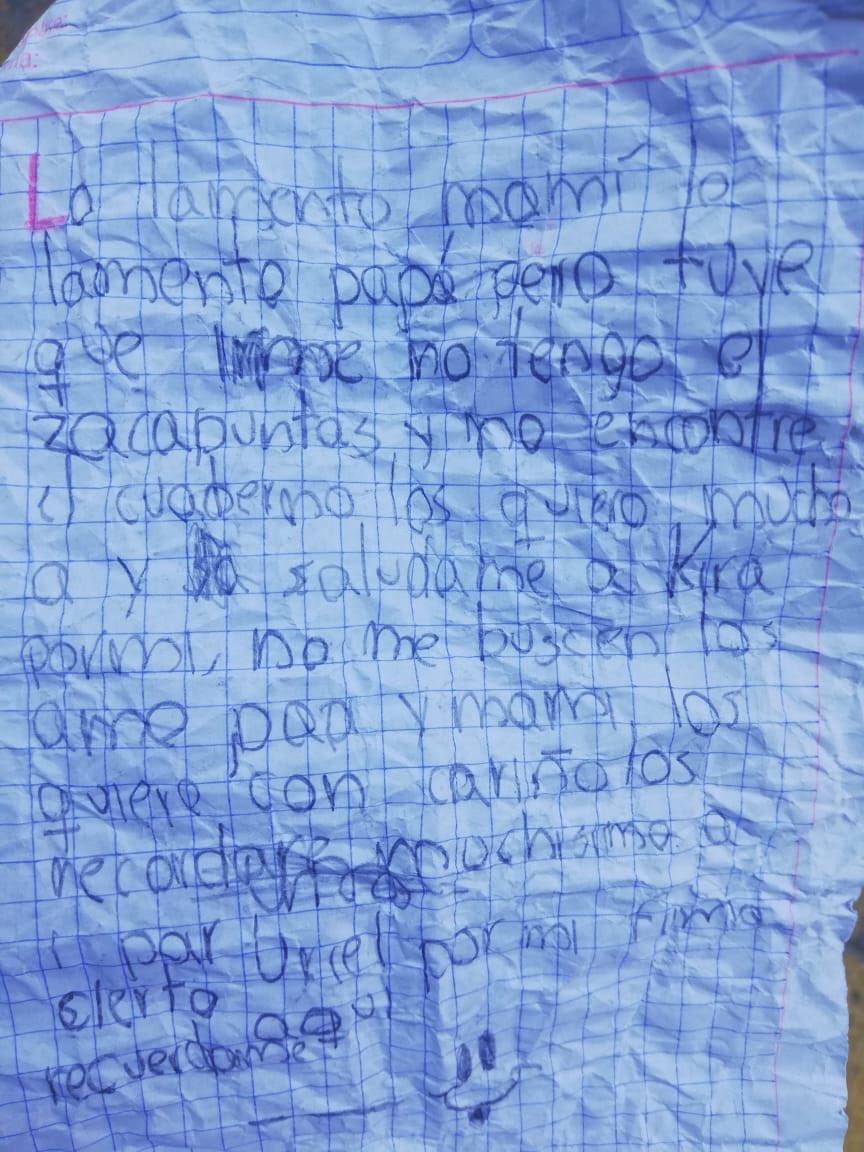 Lo lamento mamí lo
lamento papá pero tuve
que irme no tengo el
zacapuntas y no encontre
el cuaderno los quiero mucho
a y saludame a Kira
pormi, no me buscen los
ame papa y mami, los
quiere con cariño los
recordare muchisimo a
i par Uriel por mi firma
cierto aqui
recuerdame